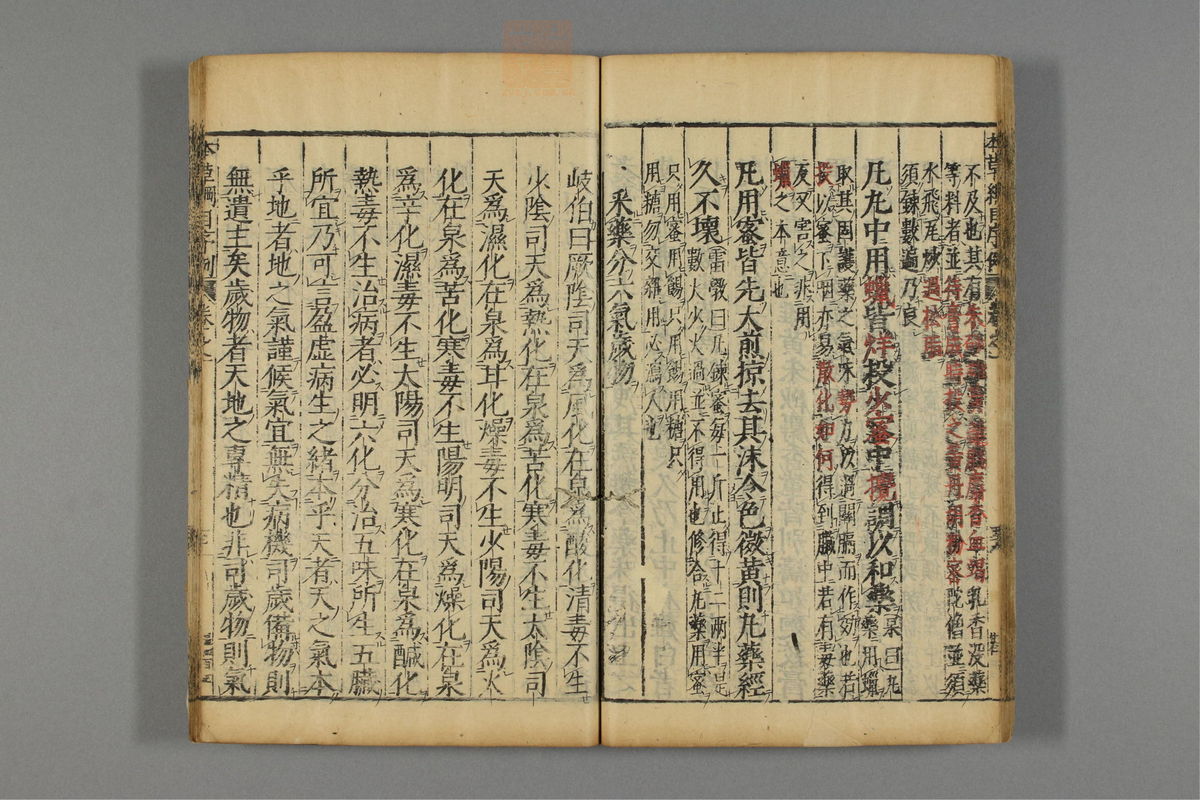 本草綱目序例
不及也其有
等料者並
水飛尾
須鍊數遍乃良
凡丸中用蠟皆烊投少蜜中攪調以和藥杲曰丸藥用蠟
取其固護藥之氣味勢力以過關膈而作效也若
投以蜜下咽亦易散化如何得到臟中若有毒藥
反又害之非用
蠟之本意也
凡用蜜皆先火煎掠去其沫令色微黃則丸藥經
久不壞雷斅曰凡鍊蜜每一斤止得十二兩半是
數火少火過並不得用也修合丸藥用蜜
只用蜜用餳只用餳用糖只
用糖勿交雜用必瀉人也
采藥分六氣歲物
岐伯曰厥陰司天為風化在泉為酸化清毒不生
少陰司天為熱化在泉為苦化寒毒不生太陰司
天為濕化在泉為甘化燥毒不生少陽司天為火
化在泉為苦化寒毒不生陽明司天為燥化在泉
為辛化濕毒不生太陽司天為寒化在泉為鹹化
熱毒不生治病者必明六化分治五味所生五臟
所宜乃可言盈虛病生之緒本乎天者天之氣本
乎地者地之氣謹候氣宜無失病機司歲備物則
無遺主矣歲物者天地之專精也非司歲物則氣
本草綱目序例